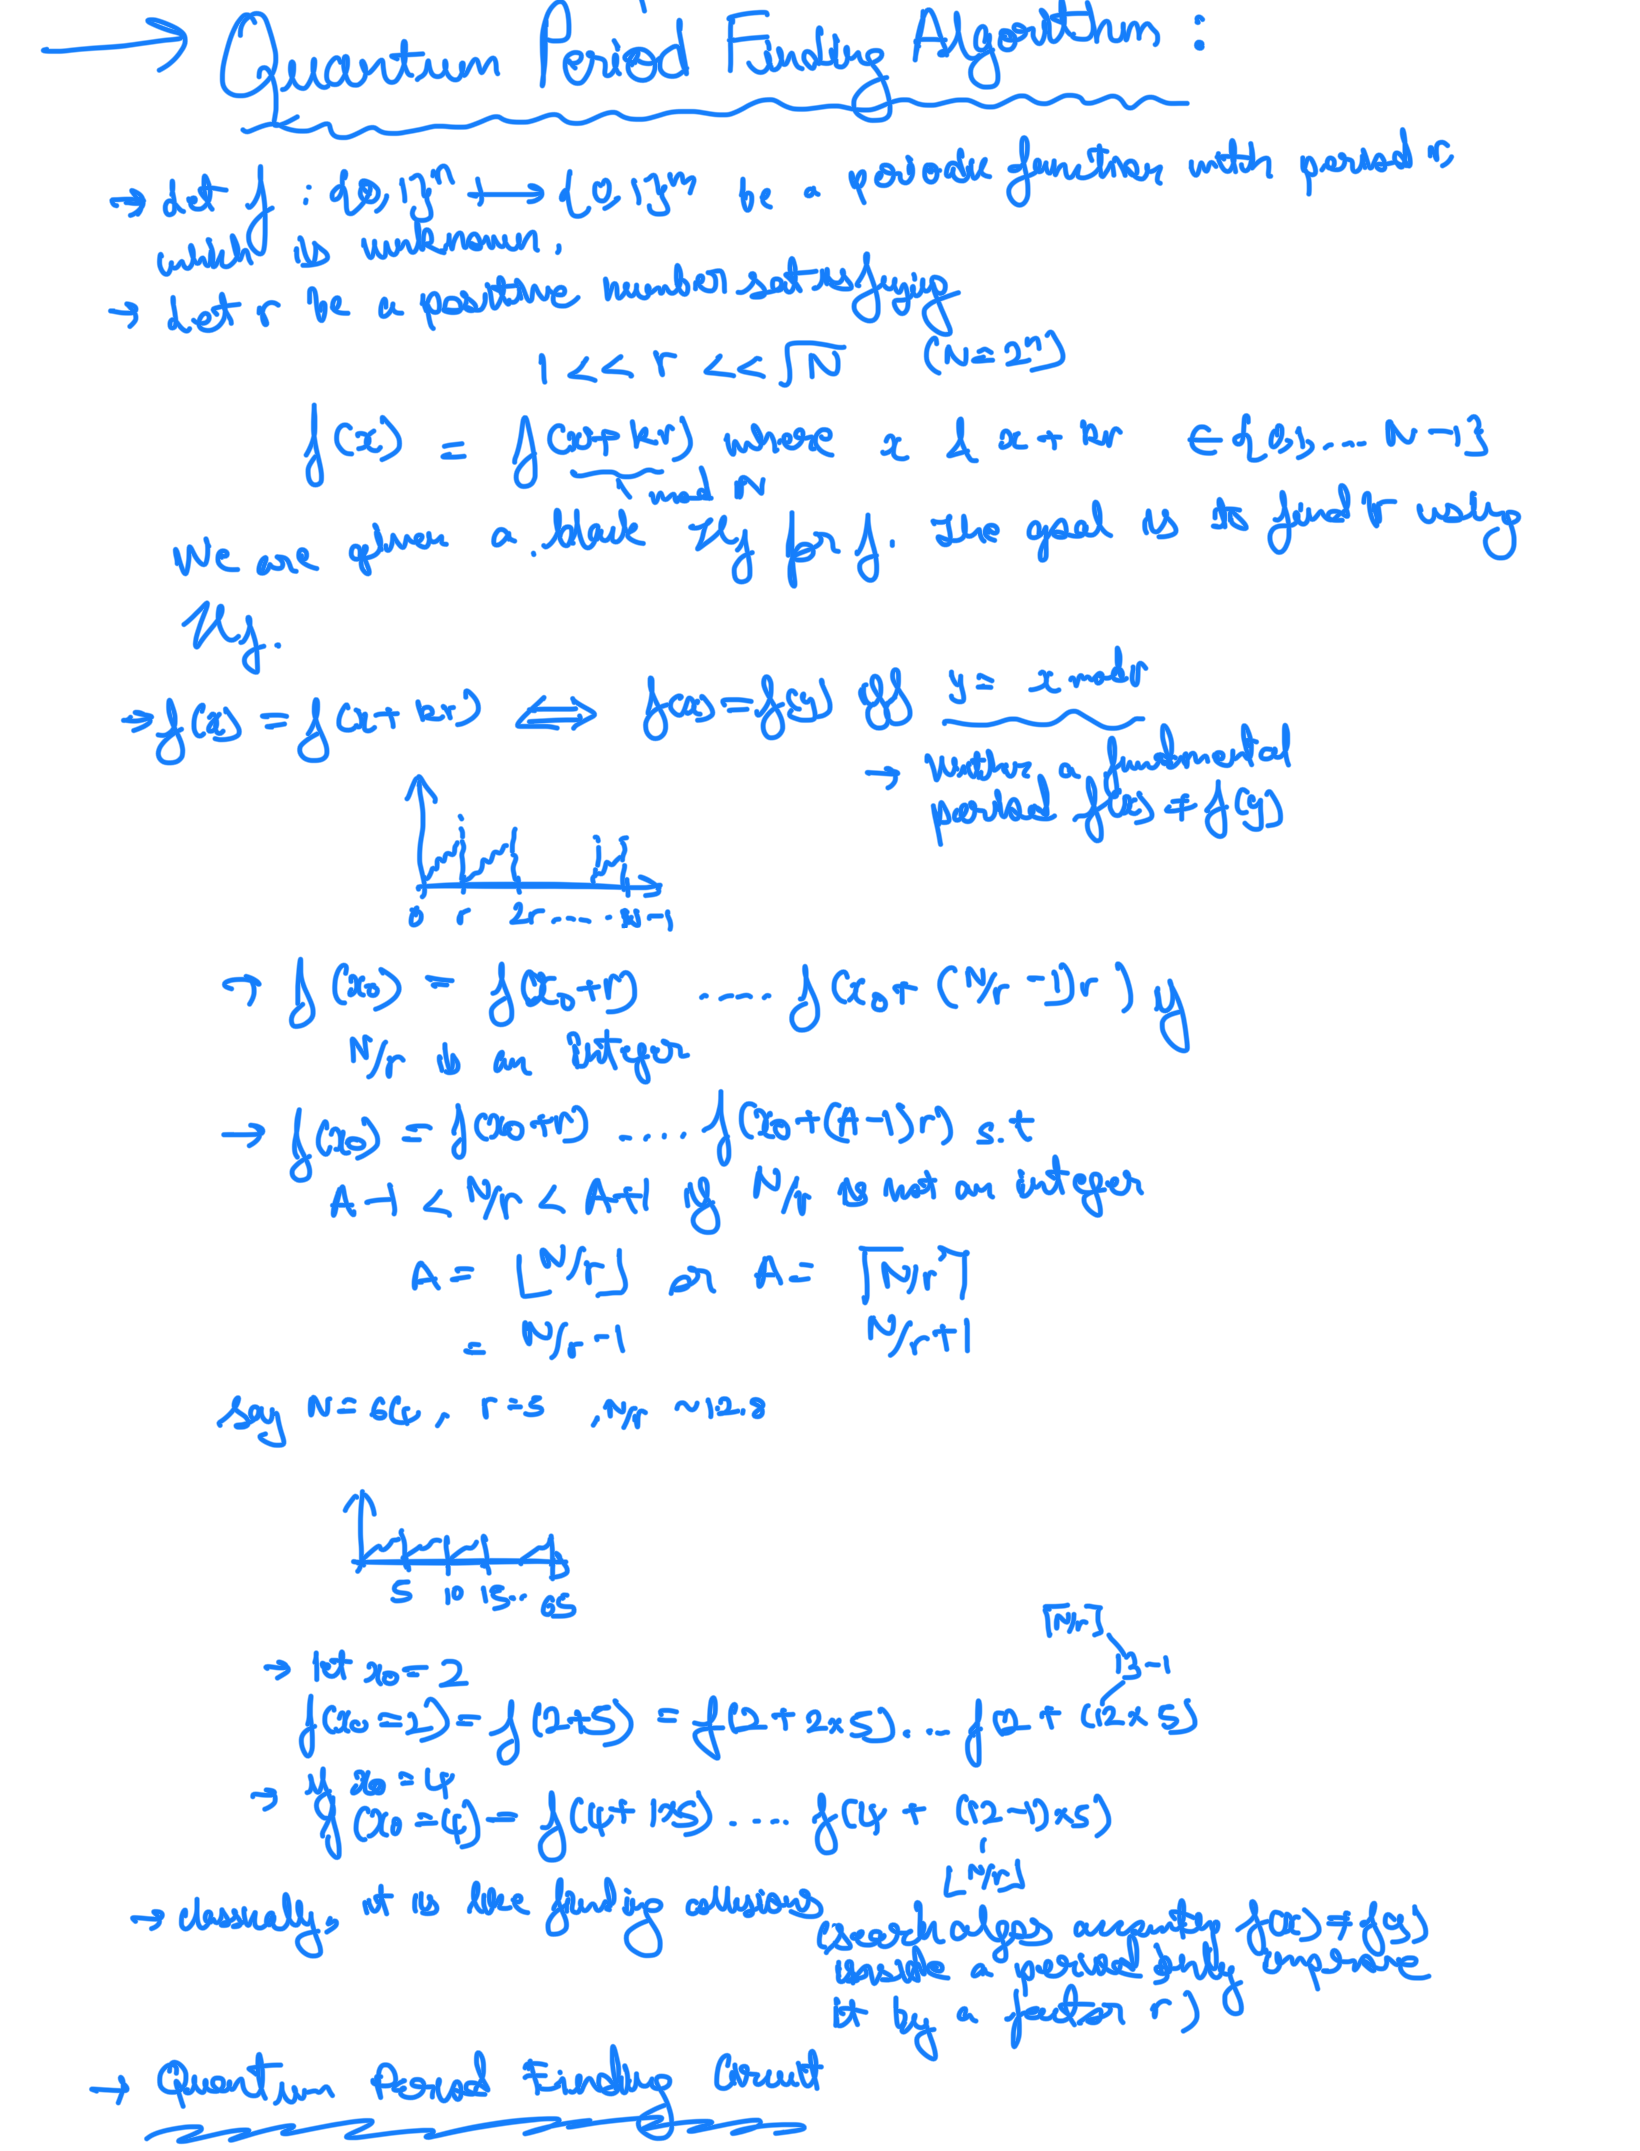 → Quantum Period Finding Algorithm :
→ Let f : {0,1}ⁿ ⟼ {0,1}ᵐ be a periodic function with period r,
which is unknown.
→ Let r be a positive number satisfying
1 << r << √N (N=2ⁿ)
f(x) = f(x+kr) where x & x+kr ∈ {0,1,... N-1}
mod N
We are given a black U_f for f. The goal is to find r using
U_f.
→ f(x) = f(x+kr) ⟺ f(x)=f(y) iff y = x mod r
→ within a fundamental
period f(x) ≠ f(y)
0 r 2r ..... N-1
→ f(x₀) = f(x₀+r) .... f(x₀+(N/r -1)r) if
N/r is an integer
→ f(x₀) = f(x₀+r) ..... f(x₀+(A-1)r) s.t
A-1 < N/r < A+1 if N/r is not an integer
A = ⌊N/r⌋ or A = ⌈N/r⌉
= N/r-1 N/r+1
Say N=64, r=5, N/r ~12.8
5 10 15.. 65
⌈N/r⌉
→ let x₀=2 13-1
f(x₀=2) = f(2+5) = f(2+2×5)... f(2+(12×5)
→ if x₀=4
f(x₀=4) = f(4+1×5) .... f(4+(12-1)×5)
⌊N/r⌋
→ classically, it is like finding collisions
(search algos assuming f(x)≠f(y)
inside a period only improve
it by a factor r)
→ Quantum Period Finding Circuit